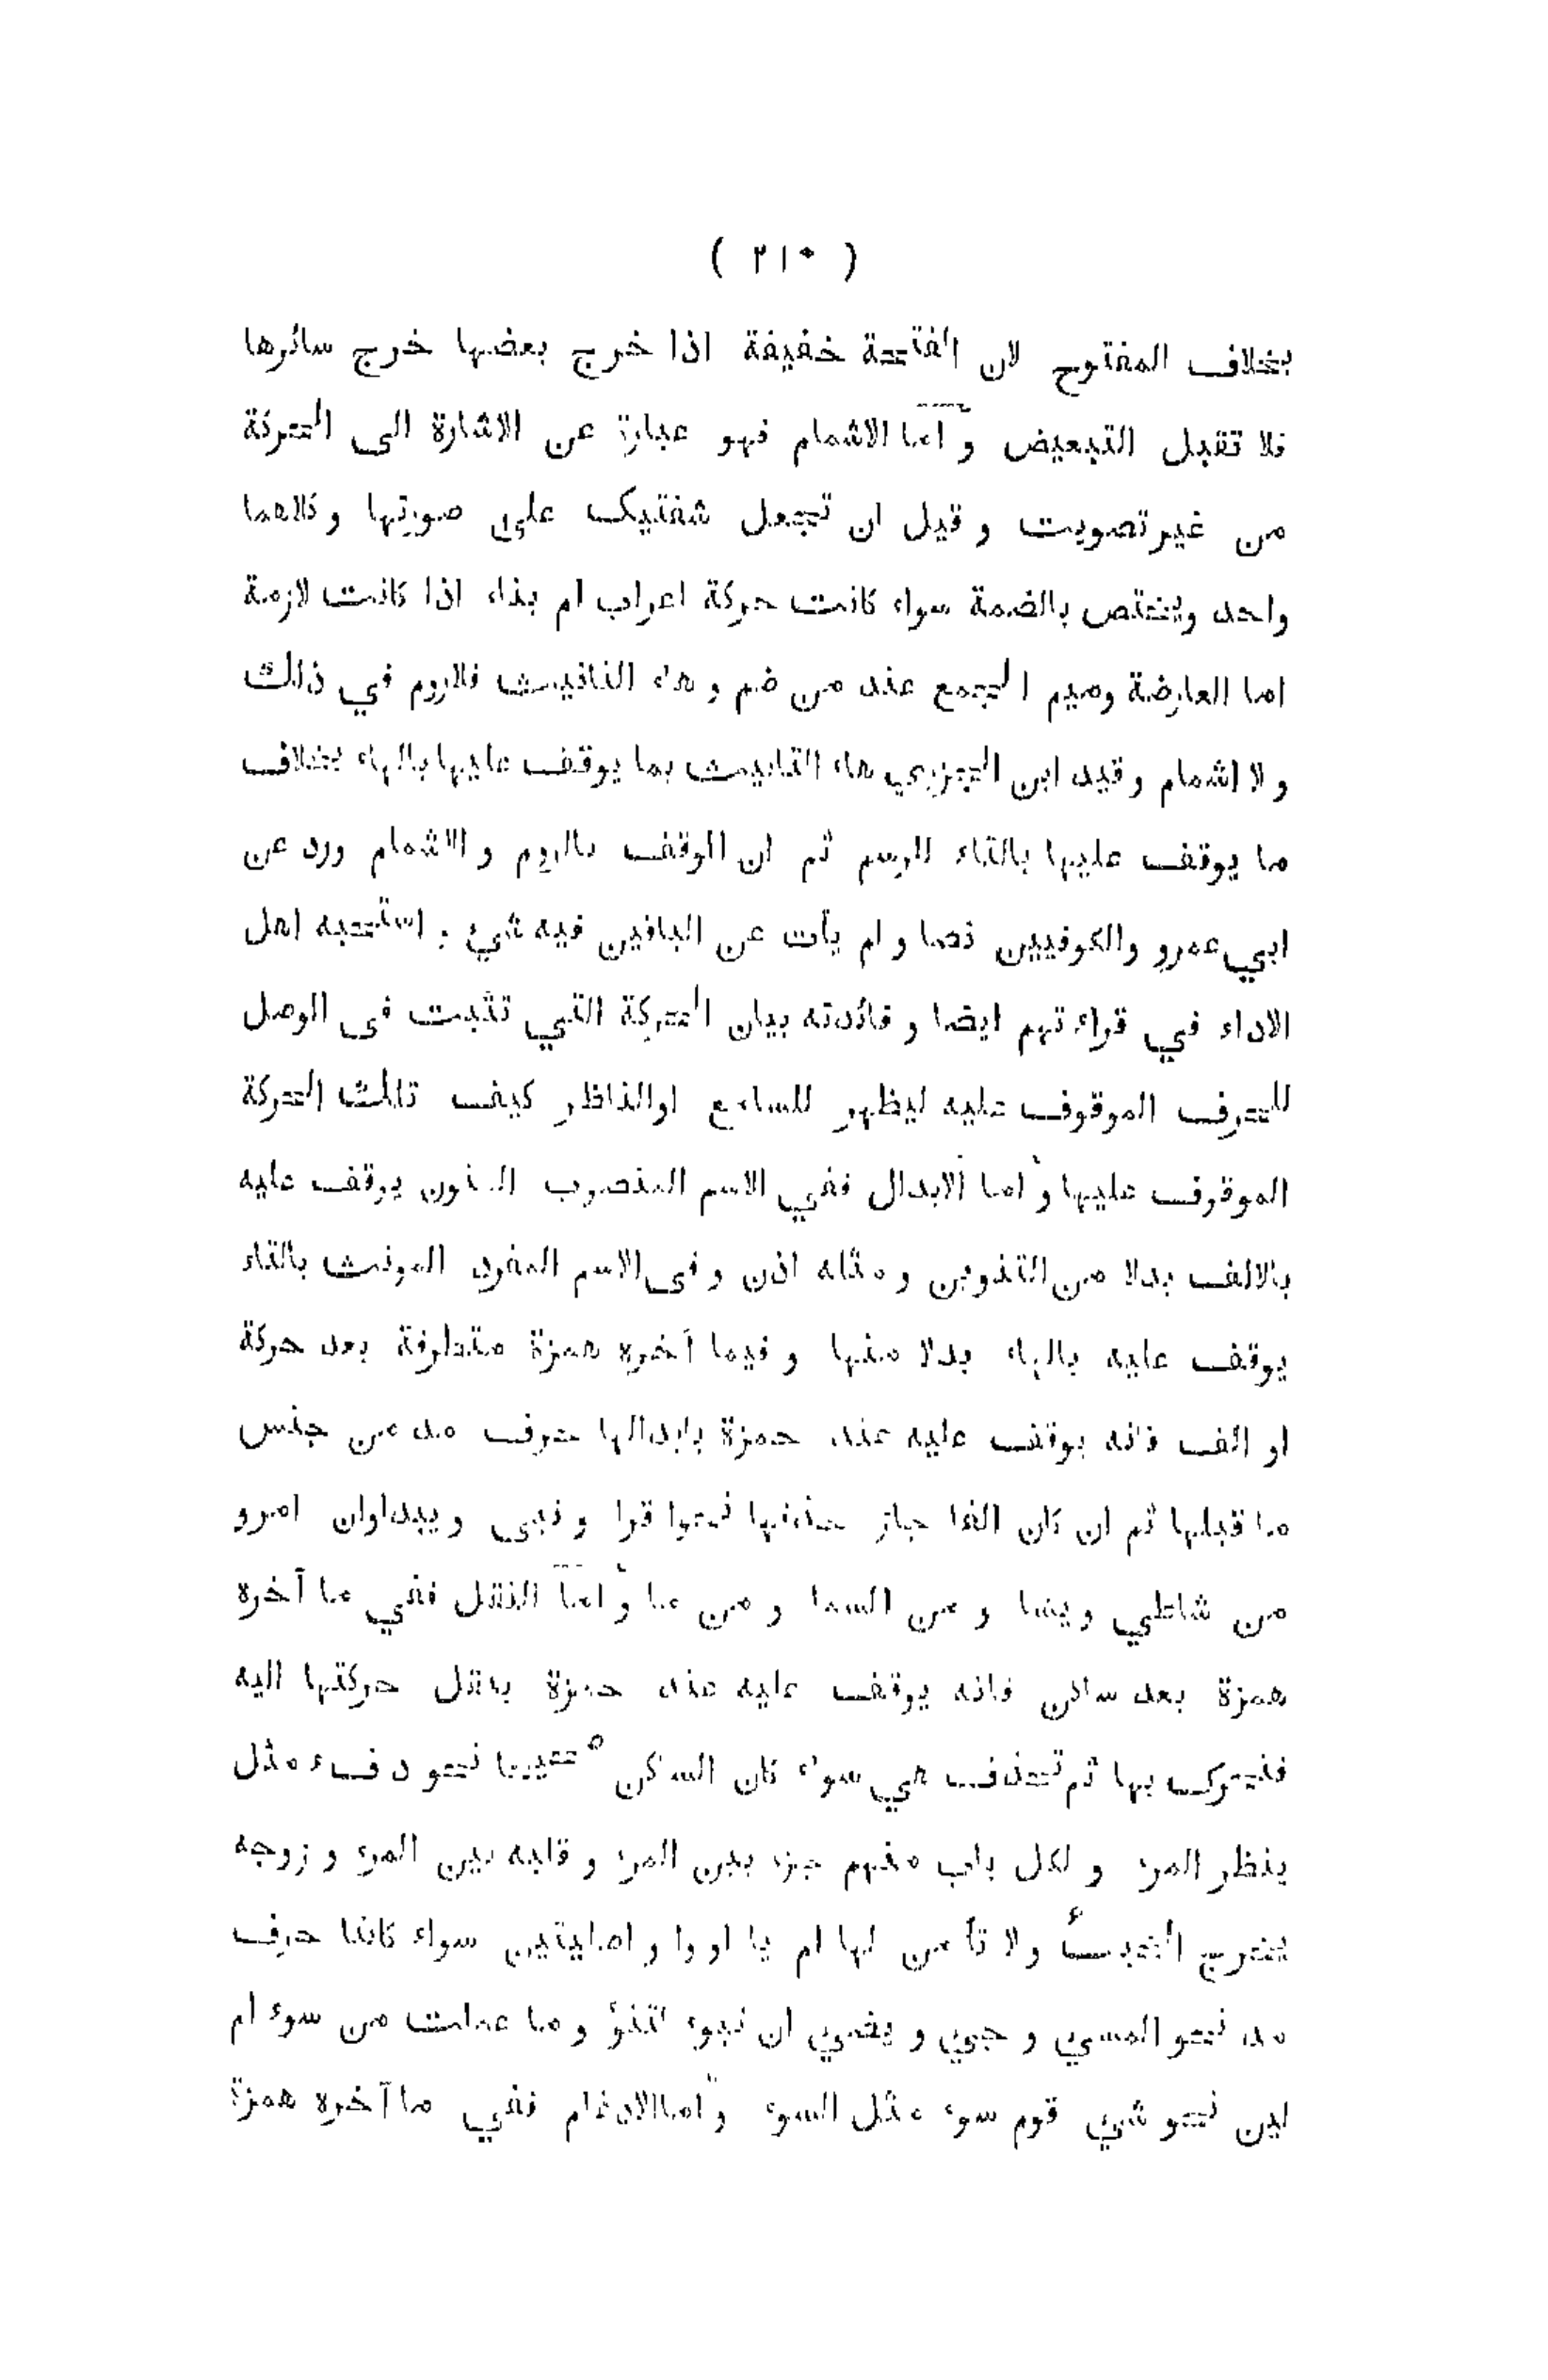 ( ٢١٠ )
بخلاف المفتوح لان الفتحة خفيفة اذا خرج بعضها خرج سائرها
فلا تقبل التبعيض و اما الاشمام فهو عبارة عن الاشارة الى الحركة
من غير تصويت و قيل ان تجعل شفتيك على صورتها و كلاهما
واحد ويختص بالضمة سواء كانت حركة اعراب ام بناء اذا كانت لازمة
اما العارضة وميم الجمع عند من ضم و هاء التانيث فلا روم في ذلك
و لا اشمام و قيد ابن الجزري هاء التانيث بما يوقف عليها بالهاء بخلاف
ما يوقف عليها بالتاء للرسم ثم ان الوقف بالروم و الاشمام ورد عن
ابي عمرو والكوفيين نصا و لم يأت عن الباقين فيه شئ و استحبه اهل
الاداء في قراءتهم ايضا و فائدته بيان الحركة التي تثبت فى الوصل
للحرف الموقوف عليه ليظهر للسامع اوالناظر كيف تلك الحركة
الموقوف عليها و اما الابدال ففي الاسم المنصوب المنون يوقف عليه
بالالف بدلا من التنوين و مثله اذن و فى الاسم المفرد المونث بالتاء
يوقف عليه بالهاء بدلا منها و فيما آخره همزة متطرفة بعد حركة
او الف فانه يوقف عليه عند حمزة بابدالها حرف مد من جنس
ما قبلها ثم ان كان الفا جاز حذفها نحوا قرا و نبى و يبداوان امرو
من شاطي و يشا و من السما و من ما و اما النقل ففي ما آخره
همزة بعد ساكن فانه يوقف عليه عند حمزة بنقل حركتها اليه
فتحرك بها ثم تحذف هي سواء كان الساكن صحيحا نحو دفء مثل
ينظر المرء و لكل باب منهم جزء بين المرء و قلبه بين المرء و زوجه
يخرج الخبأ ولا ثامن لها ام يا او وا و اصليتين سواء كانتا حرف
مد نحو المسي و جي و يضي ان تبوء لتنوأ و ما عملت من سوء ام
لين نحو شي قوم سوء مثل السوء و اما الادغام ففي ما آخره همزة